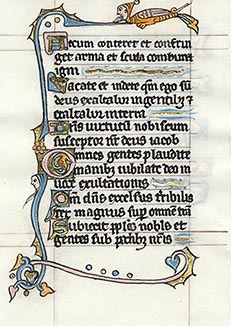 Arcum conteret et confrin
get arma et scuta comburet
igni
Vacate et videte qm ego su
deus exaltabor in gentib3 et
exaltabor in terra
Dns virtutu nobiscum
susceptor nr deus iacob
Omnes gentes plaudite
manib3 iubilate deo in
voce exultationis
Qm dns excelsus tribilis
rex magnus sup omnem tra
Subiecit pplos nobis et
gentes sub pedib3 nris